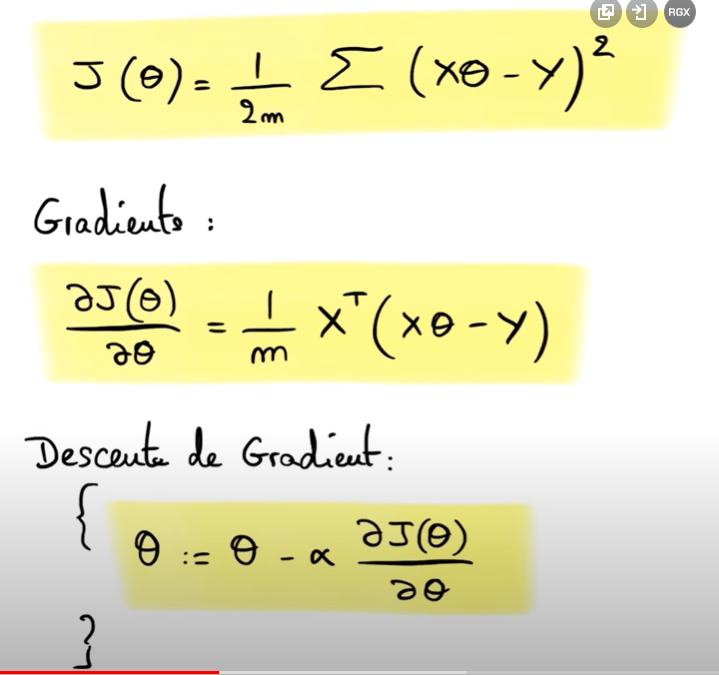 RGX
J(θ) = 1/2m Σ (Xθ - Y)²
Gradients :
∂J(θ)/∂θ = 1/m Xᵀ(Xθ - Y)
Descente de Gradient :
{
θ := θ - α ∂J(θ)/∂θ
}